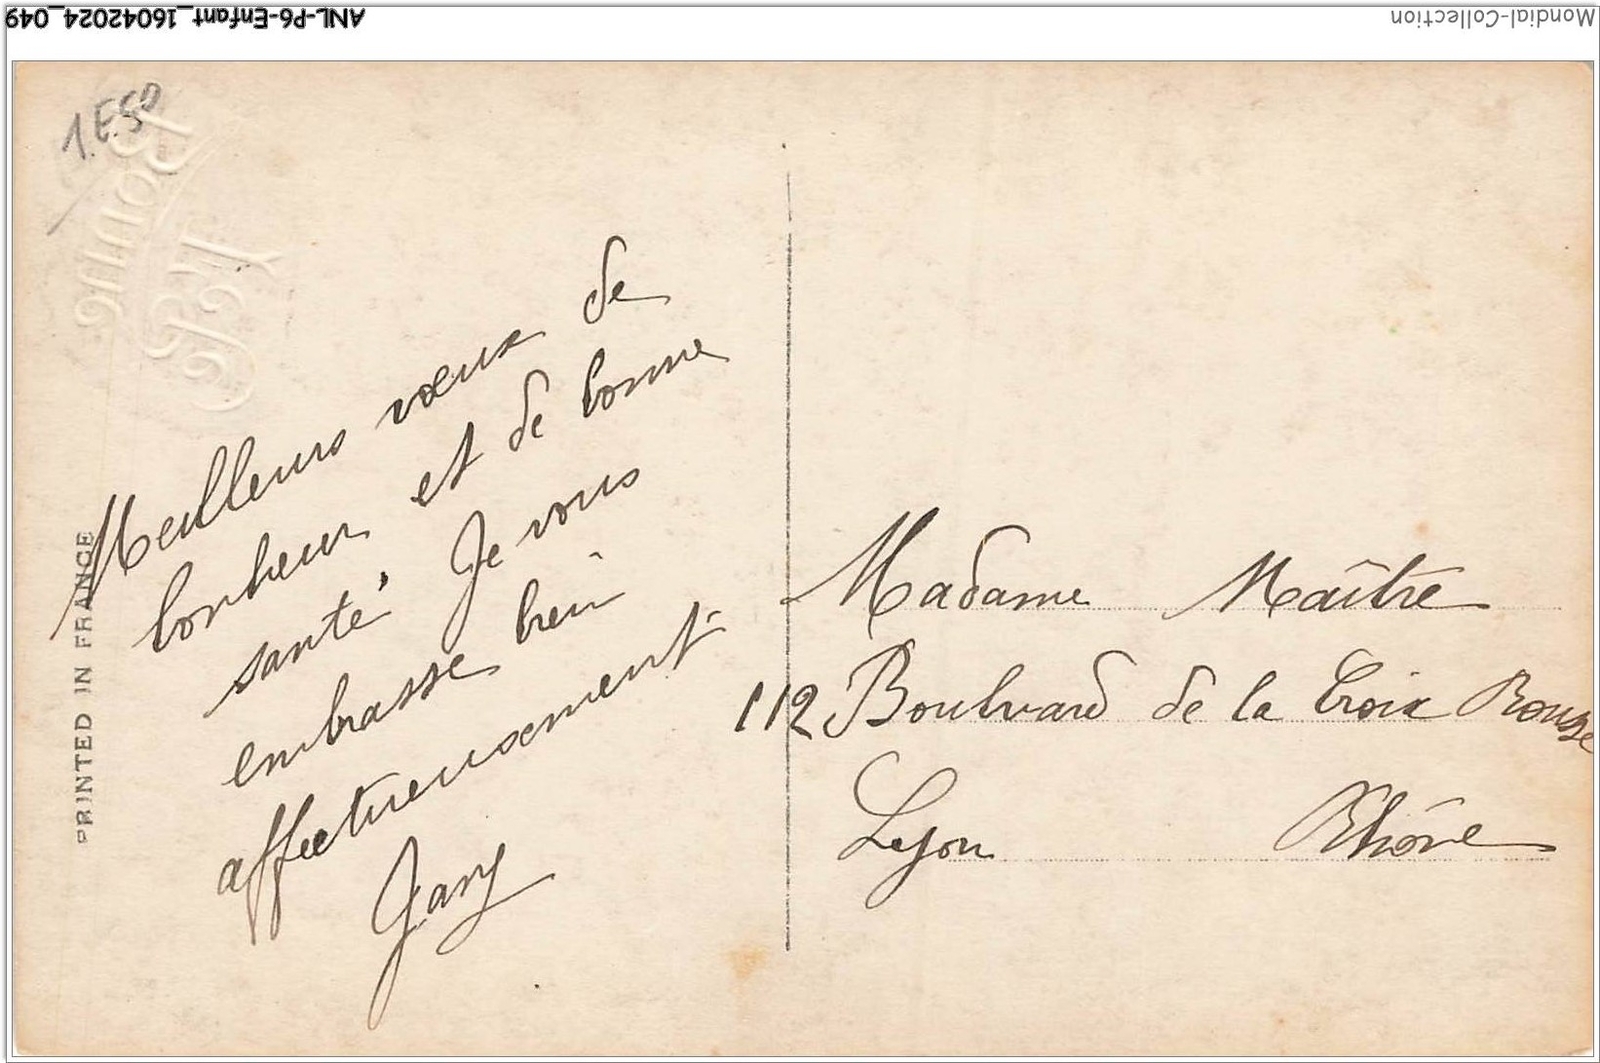 ANL-P6-Enfant_16042024_049
Mondial-Collection
1.E50
Bonne
Fête
PRINTED IN FRANCE
Meilleurs vœux de
bonheur et de bonne
santé. Je vous
embrasse bien
affectueusement
Madame Maître
112 Boulvard de la Croix Rousse
Lyon Rhône